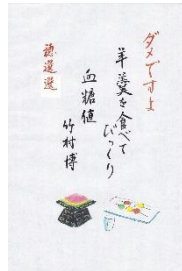 ダメですよ
羊羹を食べて
びっくり
血糖値
竹村博
穂選選